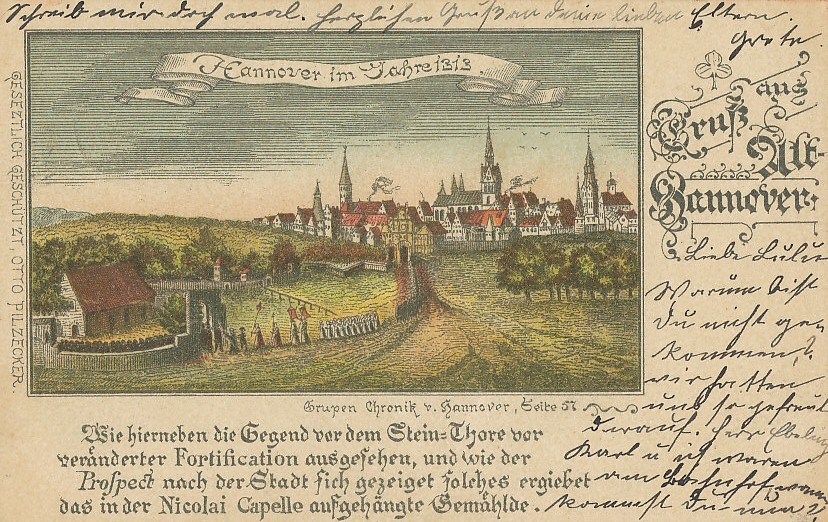 Schreib mir doch mal. Herzlichen Gruß an deine lieben Eltern.
Grete.
Hannover im Jahre 1313.
GESETZLICH GESCHÜTZT. OTTO PILZECKER.
Gruß aus
Alt-
Hannover.
Liebe Lulu
Warum bist
du nicht ge-
kommen,?
wir hatten
uns so gefreut
darauf. Herr Ebeling
Karl u ich waren
am Bahnhof wann
kommst Du nun?
Grupen Chronik v. Hannover, Seite 57
Wie hierneben die Gegend vor dem Stein=Thore vor
veränderter Fortification ausgesehen, und wie der
Prospect nach der Stadt sich gezeiget solches ergiebet
das in der Nicolai Capelle aufgehängte Gemählde.